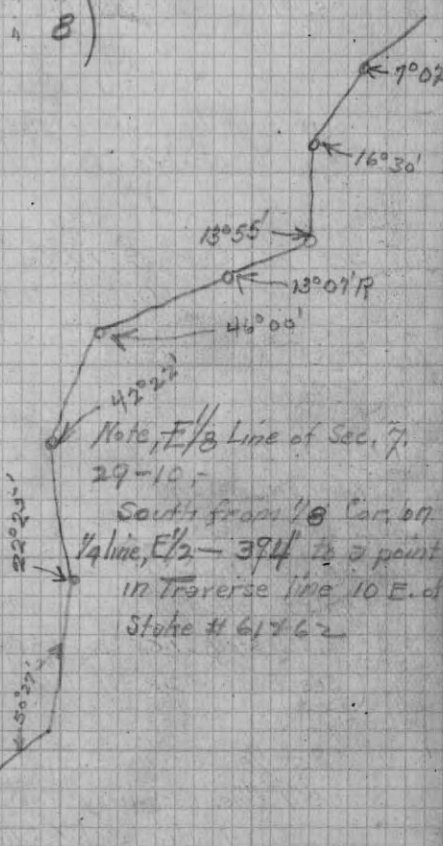 , 8)
7°02
16°30'
13°55'
13°07'R
46°00'
42°22'
Note, E 1/8 Line of Sec. 7.
29-10,-
South from 1/8 Cor. on
1/4 line, E 1/2 — 394' to a point
in Traverse line 10 E. of
Stake # 61+62
22°25'
50°27'